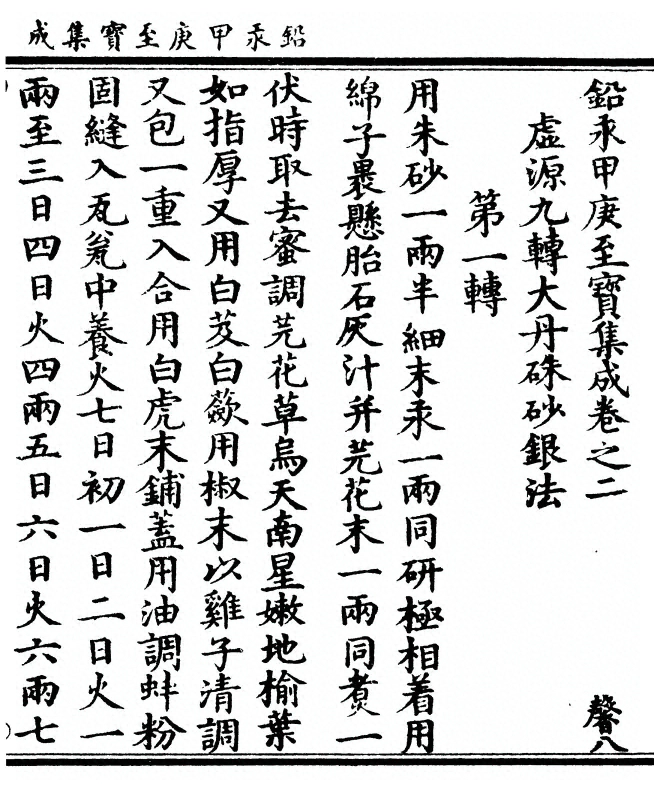 鉛汞甲庚至寶集成
鉛汞甲庚至寶集成卷之二
馨八
虛源九轉大丹硃砂銀法
第一轉
用朱砂一兩半細末汞一兩同研極相着用
綿子裹懸胎石灰汁并芫花末一兩同煑一
伏時取去蜜調芫花草烏天南星嫩地榆葉
如指厚又用白芨白蘞用椒末以雞子清調
又包一重入合用白虎末鋪蓋用油調蚌粉
固縫入瓦瓮中養火七日初一日二日火一
兩至三日四日火四兩五日六日火六兩七